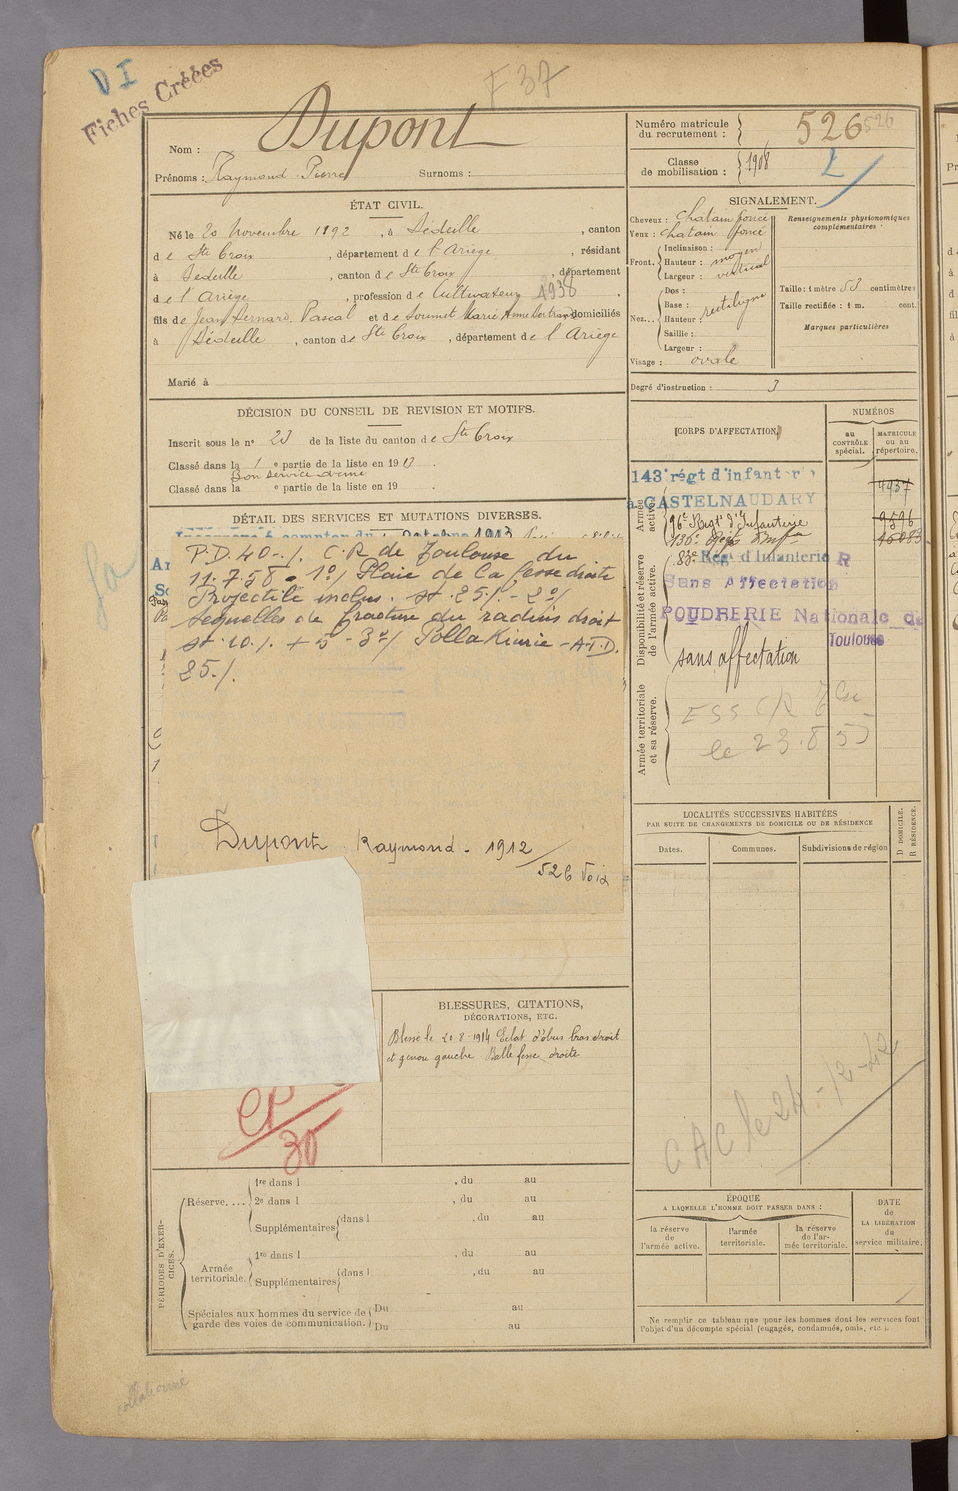 DI
Fiches Créées
F 37
Nom : Dupont
Prénoms : Raymond Pierre Surnoms :
Numéro matricule du recrutement : 526 526
Classe de mobilisation : 1908
ÉTAT CIVIL.
Né le 20 Novembre 1892, à Sédeille, canton
de Ste Croix, département de l'Ariège, résidant
à Sédeille, canton de Ste Croix, département
de l'Ariège, profession de Cultivateur 1938,
fils de Jean Bernard Pascal et de Soumet Marie Anne domiciliés
à Sédeille, canton de Ste Croix, département de l'Ariège
Marié à
SIGNALEMENT.
Cheveux : Chatain foncé
Yeux : chatain foncé
Front. Inclinaison :
Hauteur : moyen
Largeur : vertical
Nez... Dos :
Base : rectiligne
Hauteur :
Saillie :
Largeur :
Visage : ovale
Renseignements physionomiques complémentaires :
Taille : 1 mètre 53 centimètres
Taille rectifiée : 1 m. cent.
Marques particulières
Degré d'instruction : 3
DÉCISION DU CONSEIL DE REVISION ET MOTIFS.
Inscrit sous le no 23 de la liste du canton de Ste Croix
Classé dans la 1e partie de la liste en 1913.
Bon service armé
Classé dans la e partie de la liste en 19 .
DÉTAIL DES SERVICES ET MUTATIONS DIVERSES.
P.D. 40 %. C.R de Toulouse du
11.7.58. 1o/ Plaie de la fesse droite
Projectile inclus. st. 25 % - 2o/
Sequelles de fracture du radius droit
st. 10 % + 5 - 3o/ Pollakiurie - A.T.D.
25 %.
Dupont Raymond - 1912
526 Foix
CORPS D'AFFECTATION.
NUMÉROS
au CONTRÔLE spécial.
MATRICULE ou au répertoire.
Armée active.
143e régt d'infanterie
à CASTELNAUDARY
4937
96e Regt d'Infanterie
9596
136e Regt Infie
Disponibilité et réserve de l'armée active.
83e Regt d'Infanterie R
Sans Affectation
POUDRERIE Nationale de
Toulouse
sans affectation
Armée territoriale et sa réserve.
ESS CR
le 23.8 55
LOCALITÉS SUCCESSIVES HABITÉES
PAR SUITE DE CHANGEMENTS DE DOMICILE OU DE RÉSIDENCE
Dates.
Communes.
Subdivisions de région
D DOMICILE.
R RÉSIDENCE.
BLESSURES, CITATIONS,
DÉCORATIONS, ETC.
Blessé le 20-8-1914 Eclat d'obus bras droit
et genou gauche Balle fesse droite
CAC le 24-12-42
CP
30
PÉRIODES D'EXERCICES.
Réserve.... 1re dans l , du au
2e dans l , du au
Supplémentaires dans l , du au
Armée territoriale. 1re dans l , du au
Supplémentaires dans l , du au
Spéciales aux hommes du service de garde des voies de communication. Du au
Du au
ÉPOQUE
A LAQUELLE L'HOMME DOIT PASSER DANS :
la réserve de l'armée active.
l'armée territoriale.
la réserve de l'armée territoriale.
DATE de LA LIBÉRATION du service militaire.
Ne remplir ce tableau que pour les hommes dont les services font
l'objet d'un décompte spécial (engagés, condamnés, omis, etc.).